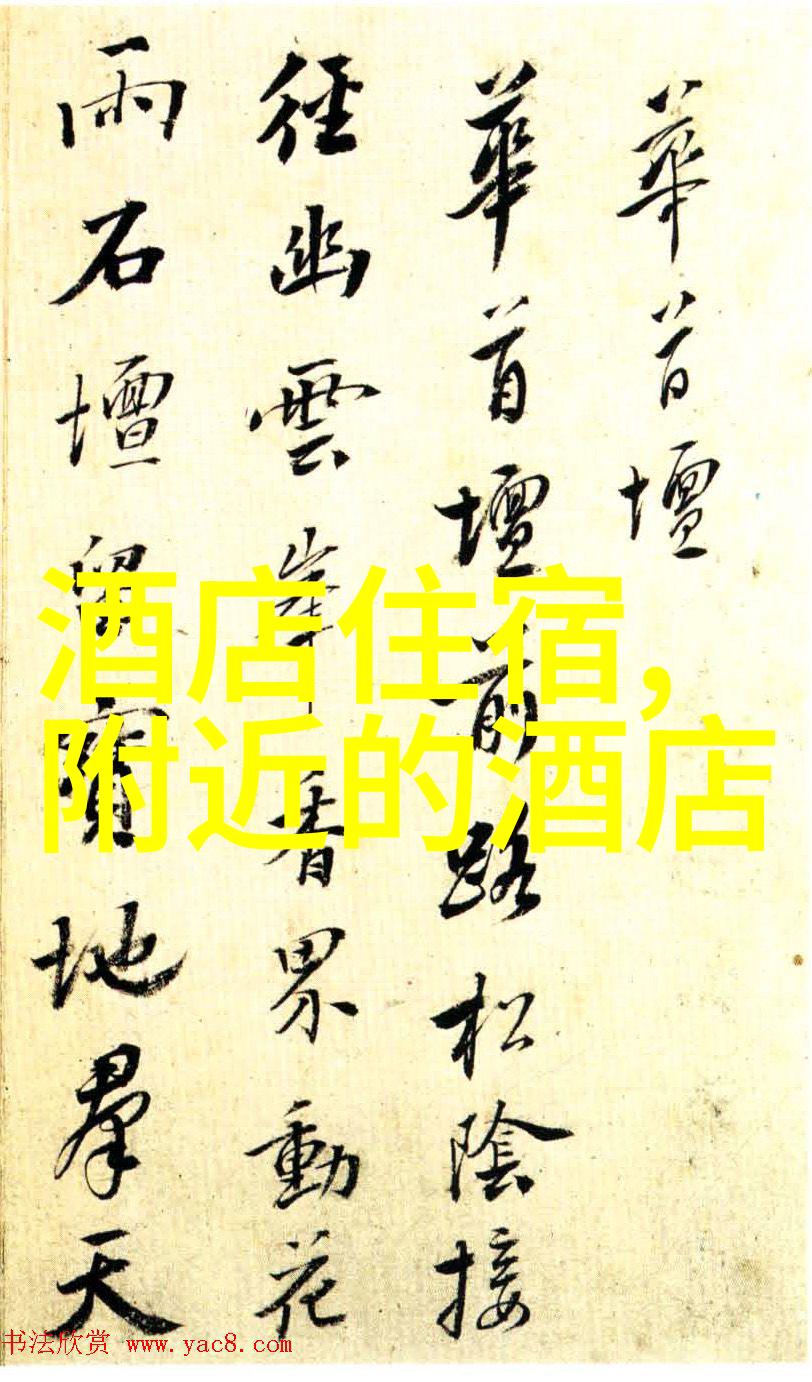 華首壇
華首壇前路松陰接
徑幽雲峯香界動花
雨石壇留寶地羣天
酒店住宿,
附近的酒店
书法欣赏 www.yac8.com